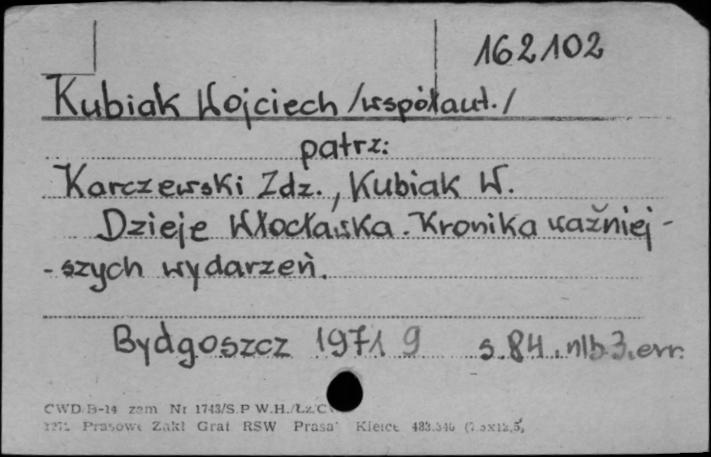 162102
Kubiak Wojciech /współaut./
patrz:
Karczewski Zdz., Kubiak W.
Dzieje Włocławska. Kronika ważniej-
-szych wydarzeń.
Bydgoszcz 1971 9 s. 84. nlb 3. err.
CWD B-14 zam Nr 1743/S.P W.H./Łz.C
Prasowe Zakł Graf RSW Prasa" Kielce